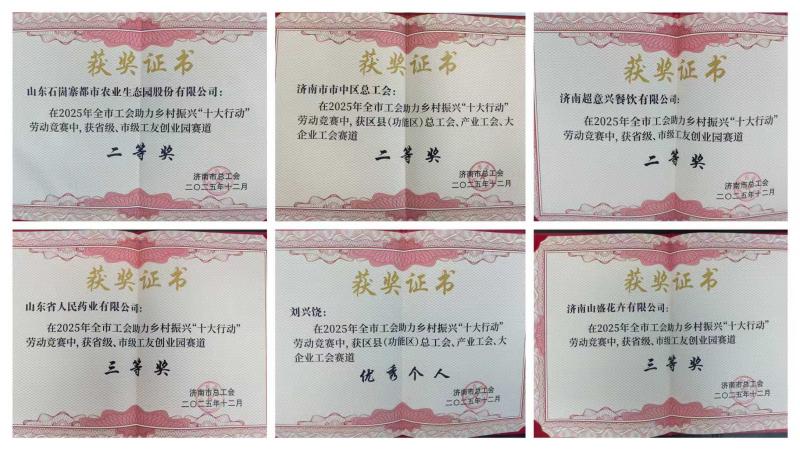 获奖证书
山东石崮寨都市农业生态园股份有限公司：
在2025年全市工会助力乡村振兴“十大行动”
劳动竞赛中，获省级、市级工友创业园赛道
二等奖
济南市总工会
二〇二五年十二月
获奖证书
济南市市中区总工会：
在2025年全市工会助力乡村振兴“十大行动”
劳动竞赛中，获区县(功能区)总工会、产业工会、大
企业工会赛道
二等奖
济南市总工会
二〇二五年十二月
获奖证书
济南超意兴餐饮有限公司：
在2025年全市工会助力乡村振兴“十大行动”
劳动竞赛中，获省级、市级工友创业园赛道
二等奖
济南市总工会
二〇二五年十二月
获奖证书
山东省人民药业有限公司：
在2025年全市工会助力乡村振兴“十大行动”
劳动竞赛中，获省级、市级工友创业园赛道
三等奖
济南市总工会
二〇二五年十二月
获奖证书
刘兴饶：
在2025年全市工会助力乡村振兴“十大行动”
劳动竞赛中，获区县(功能区)总工会、产业工会、大
企业工会赛道
优秀个人
济南市总工会
二〇二五年十二月
获奖证书
济南山盛花卉有限公司：
在2025年全市工会助力乡村振兴“十大行动”
劳动竞赛中，获省级、市级工友创业园赛道
三等奖
济南市总工会
二〇二五年十二月